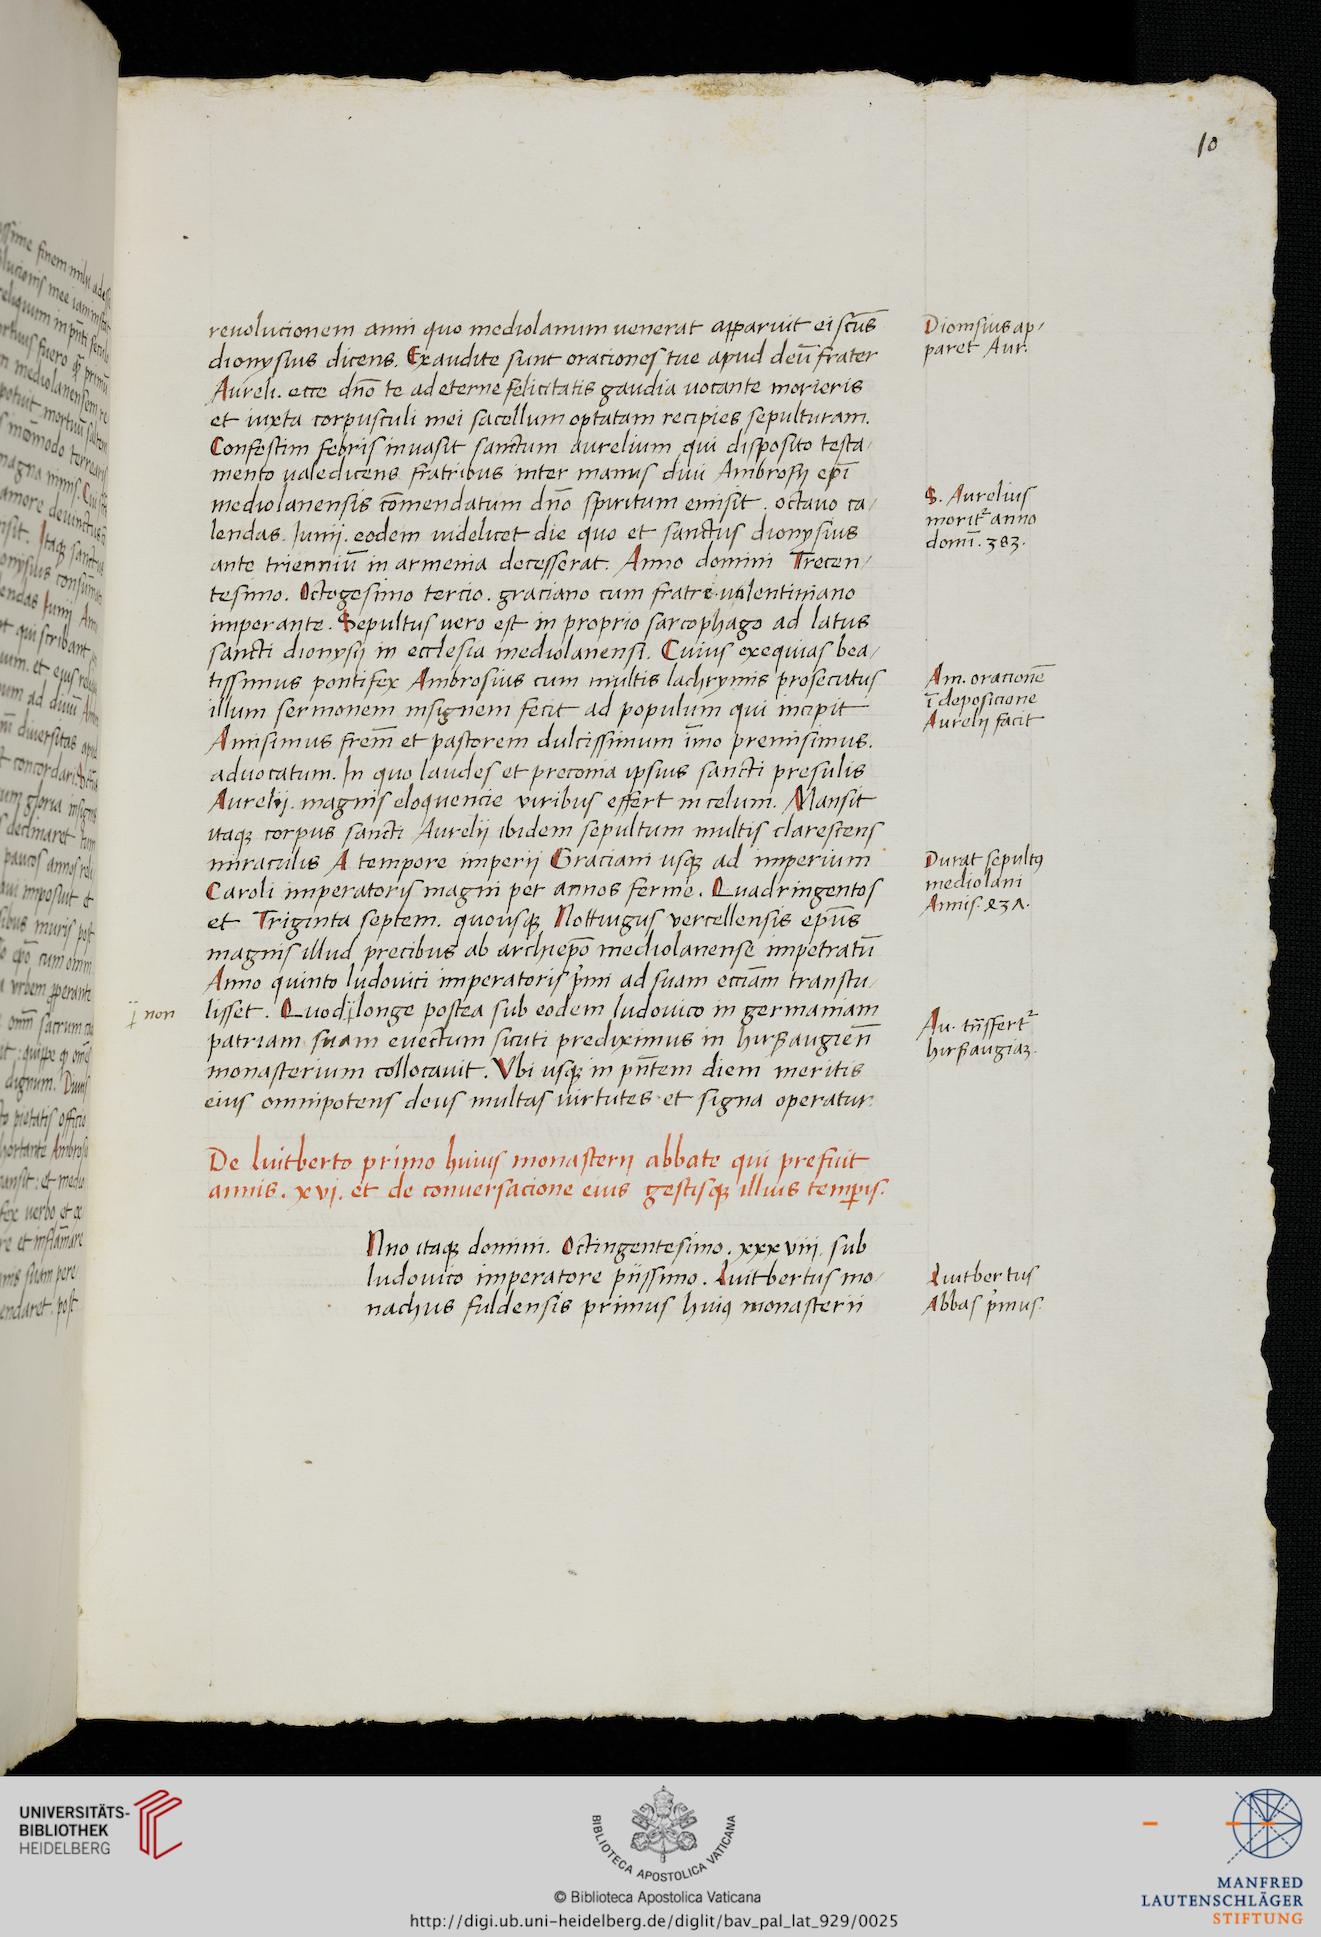 10
reuolucionem anni quo mediolanum uenerat apparuit ei scūs
dionysius dicens. Exaudite sunt orationes tue apud deū frater
Aureli. ecce dn̄o te ad eterne felicitatis gaudia uocante morieris
et iuxta corpusculi mei sacellum optatam recipies sepulturam.
Confestim febris inuasit sanctum aurelium qui disposito testa/
mento ualedicens fratribus inter manus diui Ambrosij ep̄i
mediolanensis cōmendatum dn̄o spiritum emisit. octauo ca/
lendas. Junij. eodem uidelicet die quo et sanctus dionysius
ante trienniū in armenia decesserat. Anno domini Trecen/
tesimo. Octogesimo tercio. graciano cum fratre ualentiniano
imperante. Sepultus uero est in proprio sarcophago ad latus
sancti dionysij in ecclesia mediolanensi. Cuius exequias bea/
tissimus pontifex Ambrosius cum multis lachrymis prosecutus
illum sermonem insignem fecit ad populum qui incipit
Amisimus frēm et pastorem dulcissimum īmo premisimus.
aduocatum. In quo laudes et preconia ipsius sancti presulis
Aurelij. magnis eloquencie uiribus effert in celum. Mansit
itaqȝ corpus sancti Aurelij ibidem sepultum multis clarescens
miraculis A tempore imperii Graciani usqȝ ad imperium
Caroli imperatoris magni per annos ferme. Quadringentos
et Triginta septem. quousqȝ Nottingus vercellensis ep̄us
magnis illud precibus ab archiep̄o mediolanense impetratū
Anno quinto ludouici imperatoris p̄mi ad suam ecc̄iam transtu/
lisset. Quod longe postea sub eodem ludouico in germaniam
patriam suam euectum sicuti prediximus in hirsaugien̄
monasterium collocauit. Vbi usqȝ in pn̄tem diem meritis
eius omnipotens deus multas uirtutes et signa operatur.
De luitberto primo huius monasterij abbate qui prefuit
annis. xvj. et de conuersacione eius gestisqȝ illius temp̄is.
Nno itaqȝ domini. Octingentesimo. xxxviij. sub
ludouico imperatore piissimo. Luitbertus mo/
nachus fuldensis primus huiꝰ monasterii
Dionisius ap/
paret Aur.
S. Aurelius
morit᷑ anno
domī. 383.
Am. oracionē
ī deposicione
Aurelij facit
Durat sepultꝰ
mediolani
Annis. 437.
non
Au. trn̄sfert᷑
hirsaugiaȝ.
Luitbertus
Abbas p̄mus.
UNIVERSITÄTS-
BIBLIOTHEK
HEIDELBERG
BIBLIOTECA APOSTOLICA VATICANA
© Biblioteca Apostolica Vaticana
http://digi.ub.uni-heidelberg.de/diglit/bav_pal_lat_929/0025
MANFRED
LAUTENSCHLÄGER
STIFTUNG